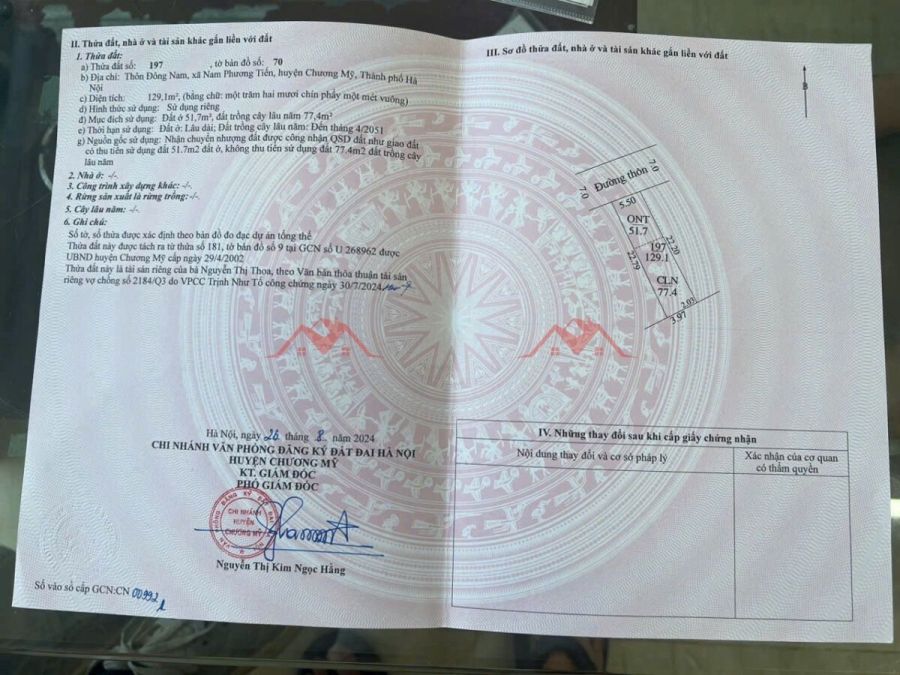 II. Thửa đất, nhà ở và tài sản khác gắn liền với đất
1. Thửa đất:
a) Thửa đất số: 197 , tờ bản đồ số: 70
b) Địa chỉ: Thôn Đông Nam, xã Nam Phương Tiến, huyện Chương Mỹ, Thành phố Hà
Nội
c) Diện tích: 129,1m², (bằng chữ: một trăm hai mươi chín phẩy một mét vuông)
d) Hình thức sử dụng: Sử dụng riêng
đ) Mục đích sử dụng: Đất ở 51,7m², đất trồng cây lâu năm 77,4m²
e) Thời hạn sử dụng: Đất ở: Lâu dài; Đất trồng cây lâu năm: Đến tháng 4/2051
g) Nguồn gốc sử dụng: Nhận chuyển nhượng đất được công nhận QSD đất như giao đất
có thu tiền sử dụng đất 51.7m2 đất ở, không thu tiền sử dụng đất 77.4m2 đất trồng cây
lâu năm
2. Nhà ở: -/-
3. Công trình xây dựng khác: -/-
4. Rừng sản xuất là rừng trồng: -/-
5. Cây lâu năm: -/-
6. Ghi chú:
Số tờ, số thửa được xác định theo bản đồ đo đạc dự án tổng thể
Thửa đất này được tách ra từ thửa số 181, tờ bản đồ số 9 tại GCN số U 268962 được
UBND huyện Chương Mỹ cấp ngày 29/4/2002
Thửa đất này là tài sản riêng của bà Nguyễn Thị Thoa, theo Văn bản thỏa thuận tài sản
riêng vợ chồng số 2184/Q3 do VPCC Trịnh Như Tô công chứng ngày 30/7/2024
Hà Nội, ngày 26 tháng 8 năm 2024
CHI NHÁNH VĂN PHÒNG ĐĂNG KÝ ĐẤT ĐAI HÀ NỘI
HUYỆN CHƯƠNG MỸ
KT. GIÁM ĐỐC
PHÓ GIÁM ĐỐC
VĂN PHÒNG ĐĂNG KÝ ĐẤT ĐAI HÀ NỘI
CHI NHÁNH
HUYỆN
CHƯƠNG MỸ
Nguyễn Thị Kim Ngọc Hằng
Số vào sổ cấp GCN:CN 00992
III. Sơ đồ thửa đất, nhà ở và tài sản khác gắn liền với đất
B
7.0
Đường thôn
7.0
5.50
ONT
51.7
197
129.1
22.20
22.79
CLN
77.4
2.03
3.97
IV. Những thay đổi sau khi cấp giấy chứng nhận
Nội dung thay đổi và cơ sở pháp lý
Xác nhận của cơ quan
có thẩm quyền